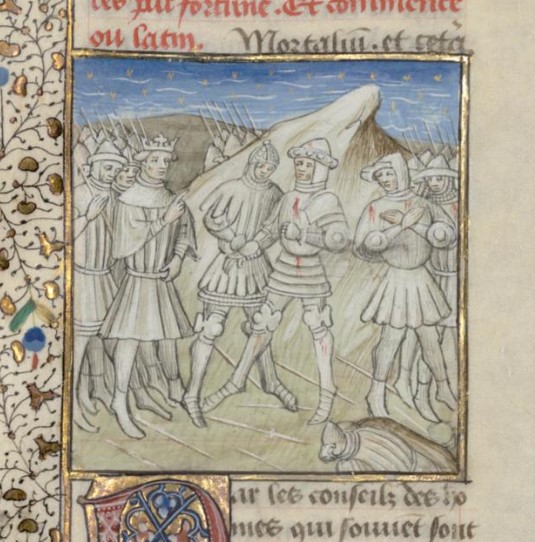 les par fortune. Et commence
ou latin. Mortaliū. et cetā
ar les conseilz des ho
mes qui souuēt sont